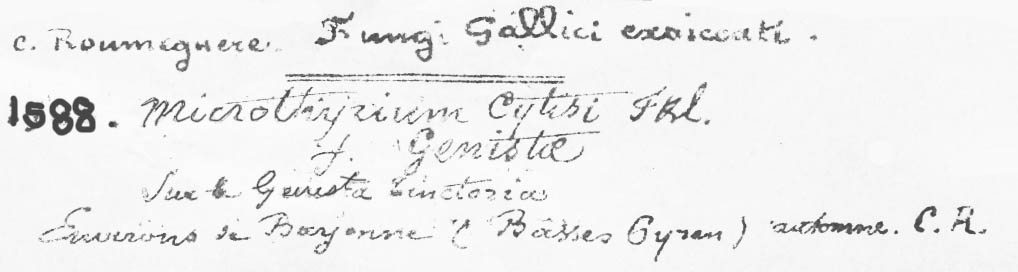 C. Roumeguère. Fungi Gallici exsiccati.
1588. Microthyrium Cytisi Fkl.
f. Genistæ
Sur le Genista tinctoria
Environs de Bayonne (Basses Pyren) automne. C. R.